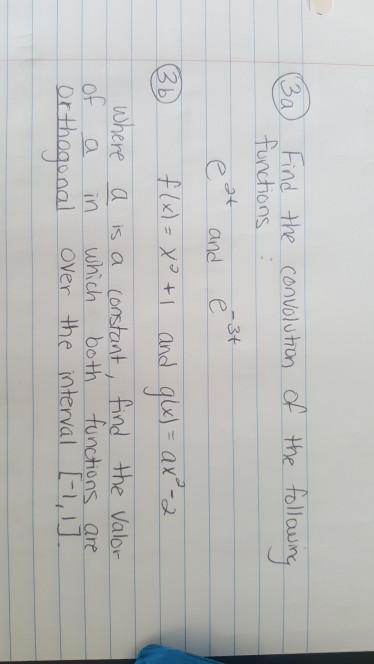 3a Find the convolution of the following
functions :
e^2t and e^-3t
3b f(x) = x² + 1 and g(x) = ax² - 2
where a is a constant, find the valor
of a in which both functions are
orthogonal over the interval [-1, 1].